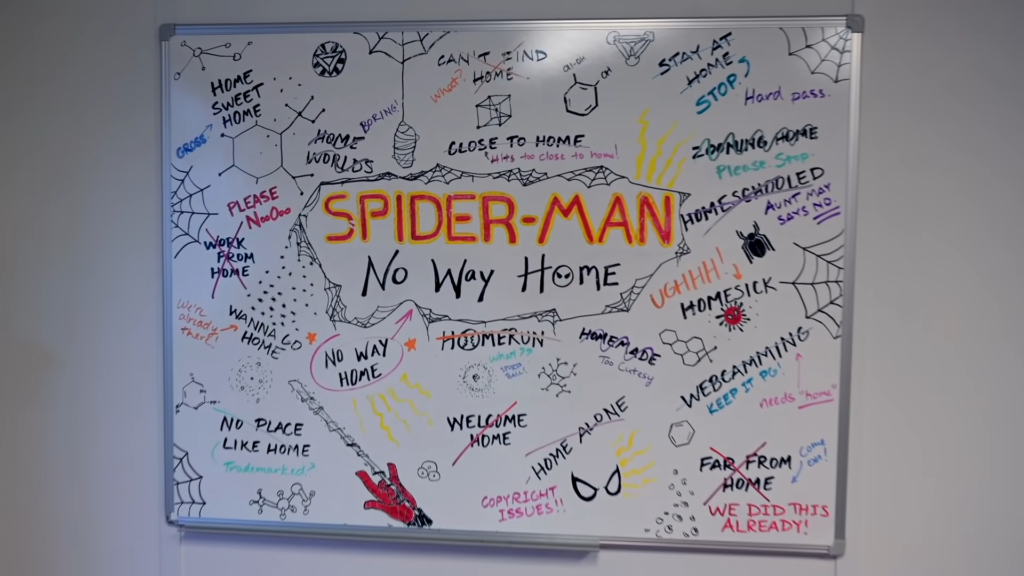 HOME
SWEET
HOME
GROSS
BORING!
HOME
WORLDS
CAN'T FIND
HOME
What?
CLOSE TO HOME
Hits too close to home!
OH
STAY AT
HOME
STOP.
Hard pass.
ZOOMING HOME
Please Stop.
HOMESCHOOLED
AUNT MAY
SAYS NO.
PLEASE
NooOoo
WORK
FROM
HOME
SPIDER-MAN
No Way Home
UGHHH!
HOMESICK
We're
already
there!
WANNA GO
HOME
NO WAY
HOME
HOMERUN
What??
HOMEMADE
Too Cutesy
WEBCAMMING
KEEP IT PG!
needs "home"
NO PLACE
LIKE HOME
Trademarked?
WELCOME
HOME
HOME ALONE
COPYRIGHT
ISSUES!!
FAR FROM
HOME
Come
on!
WE DID THIS
ALREADY!